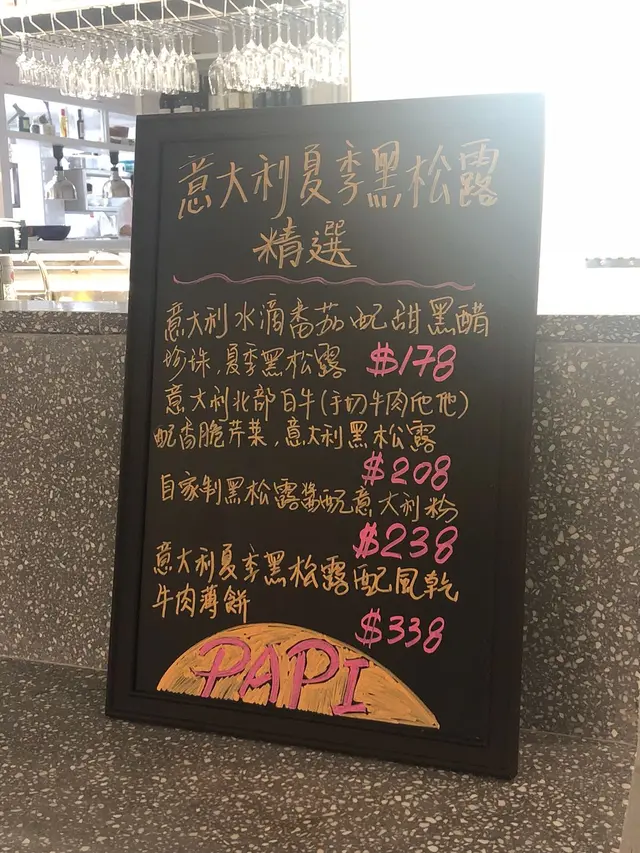 意大利夏季黑松露
精選
意大利水滴番茄配甜黑醋
珍珠,夏季黑松露 $178
意大利北部白牛(手切牛肉他他)
配香脆芹菜,意大利黑松露
$208
自家制黑松露醬配意大利粉
$238
意大利夏季黑松露配風乾
牛肉薄餅
$338
PAPI